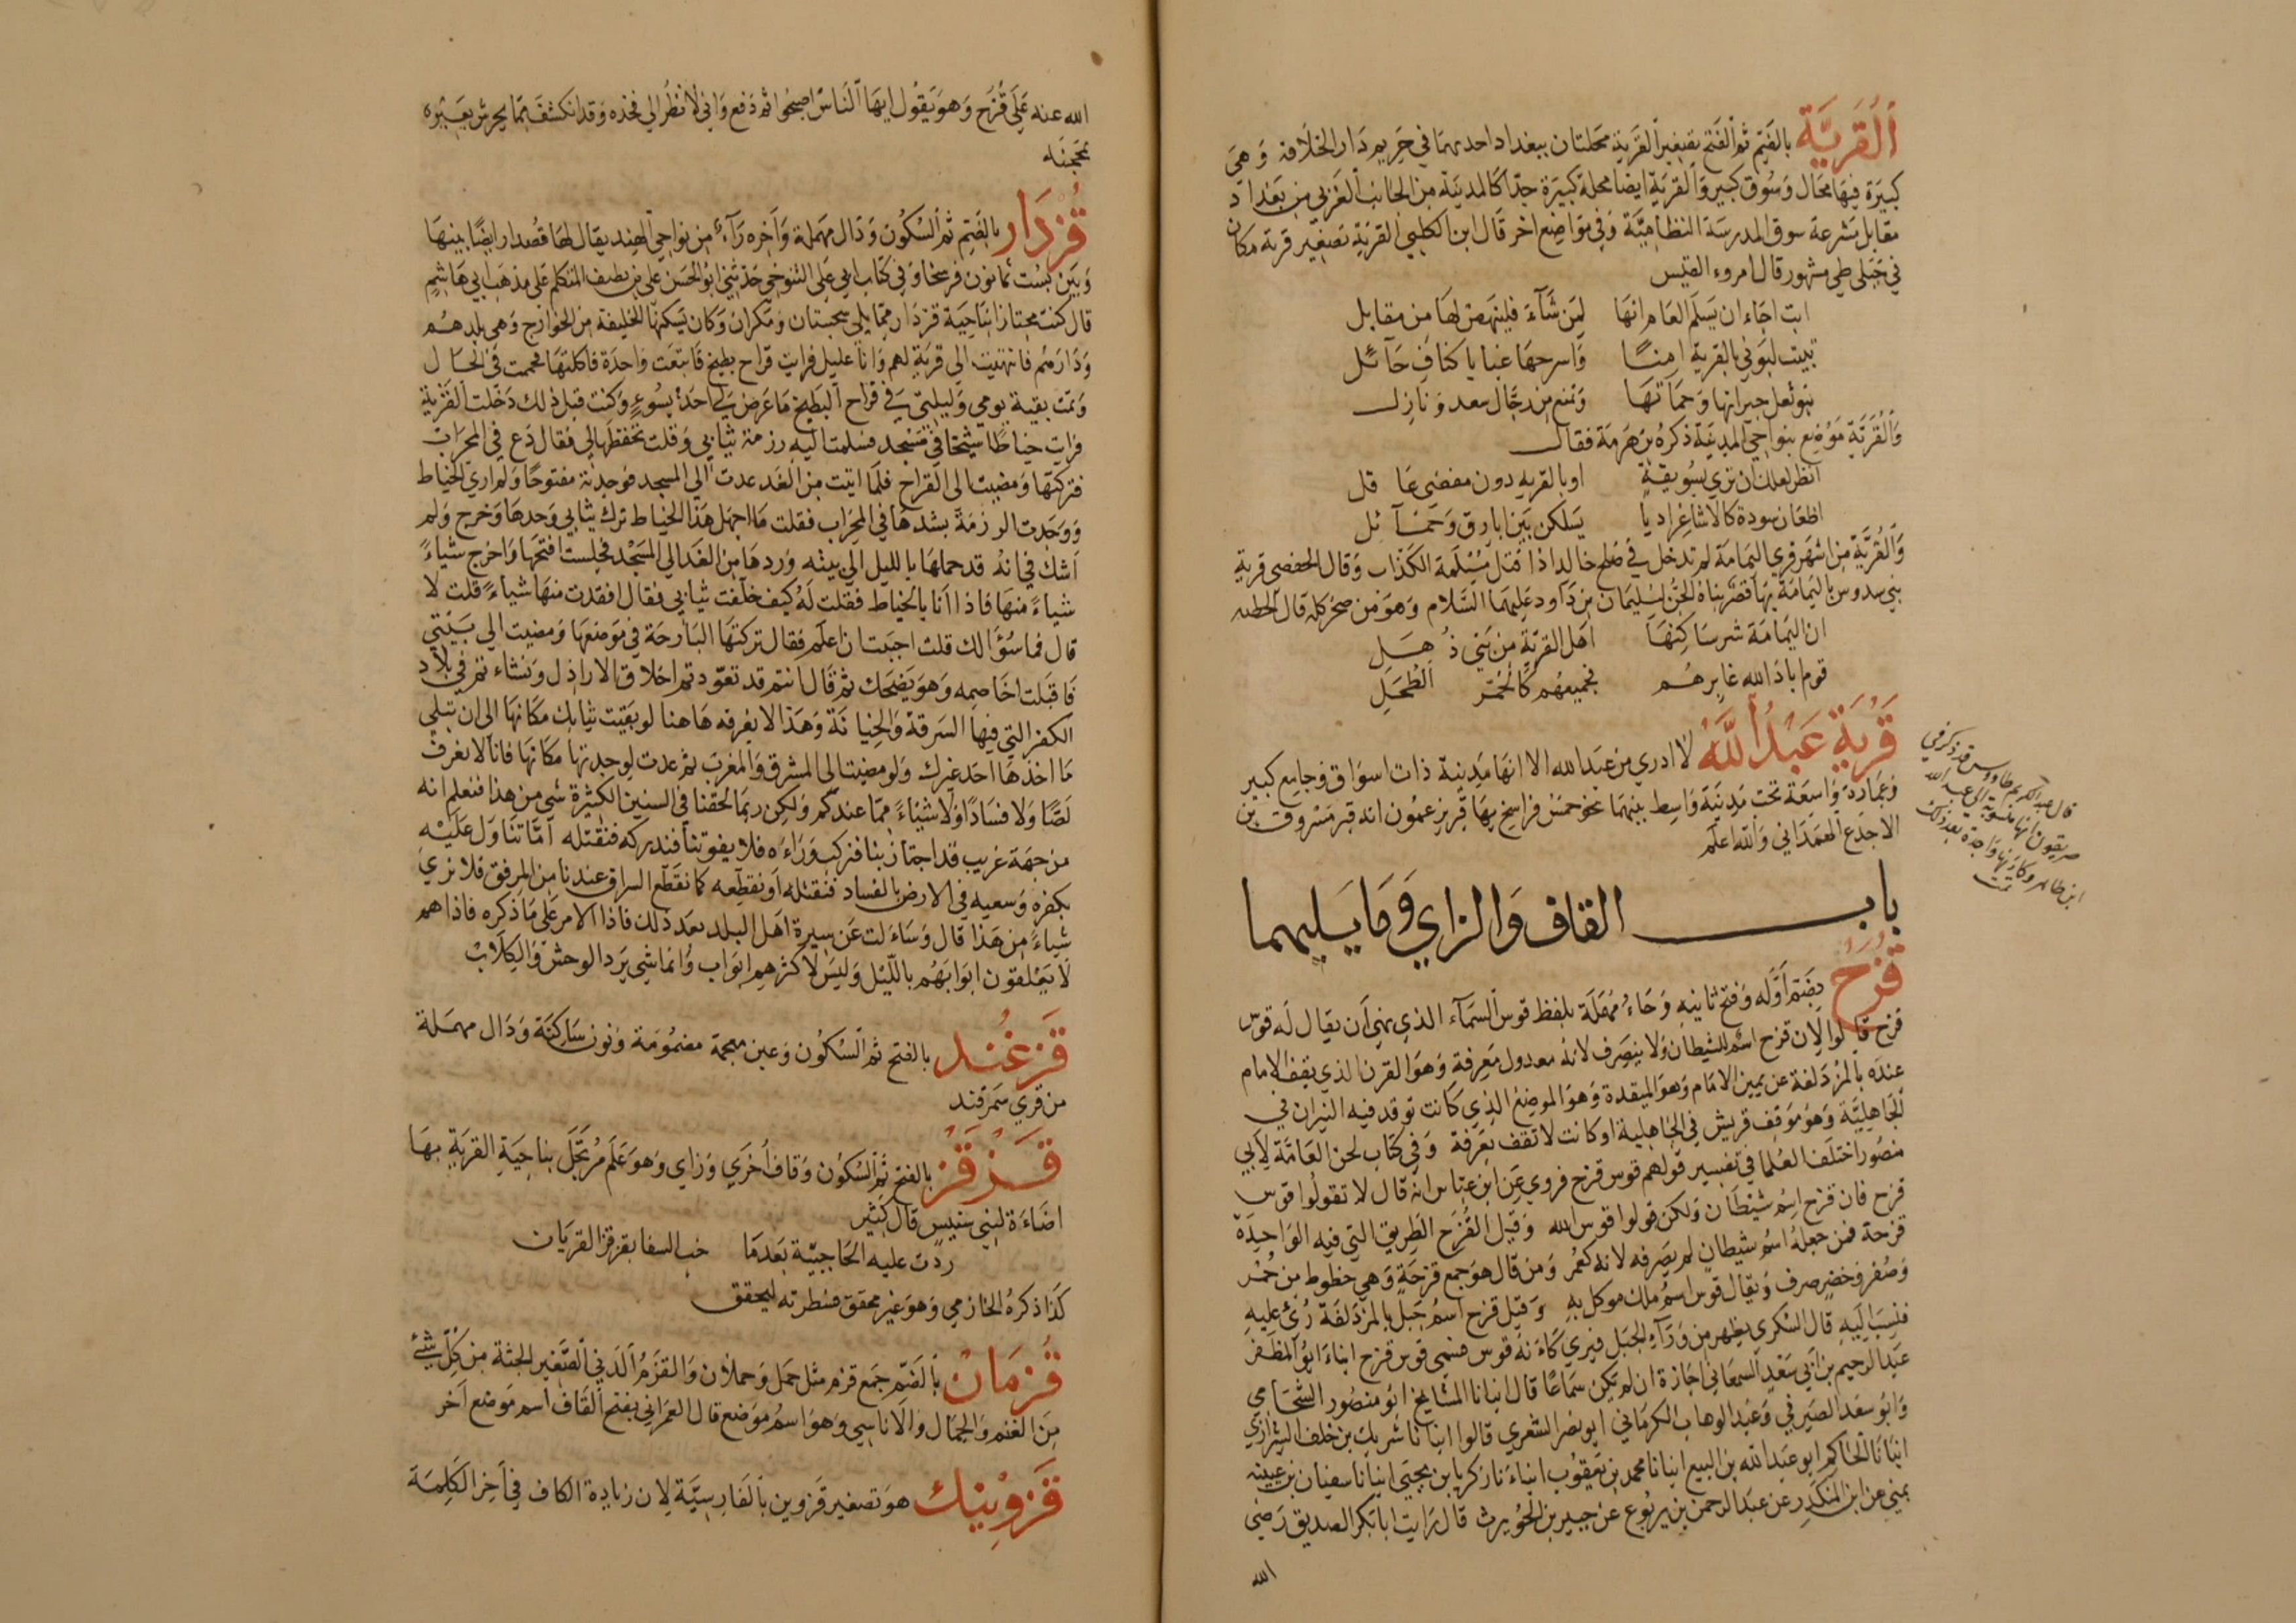 اَلْقُرَيَّة بالضم ثم الفتح تصغير القرية محلتان ببغداد احديهما في حريم دار الخلافة وهي
كبيرة فيها محال وسوق كبير والقرية ايضا محلة كبيرة جدّا كالمدينة من الجانب الغربي من بغداد
مقابل مشرعة سوق المدرسة النظاميّة وفي مواضع اخر قال ابن الكلبي القرية تصغير قرية مكان
في جبلى طي مشهور قال امروء القيس
ابت اجاء ان يسلم العام انها لمن شآء فلينهض لها من مقابل
تبيت لبوني بالقرية امنًا واسرحها غبا باكناف حآئل
بنو ثعل جيرانها وحماتها وتمنع من رجال سعد ونازل
والقريّة موضع بنواحي المدينة ذكره بن هرمة فقال
انظر لعلك ان تري بسويقة او بالقريه دون مفضى عاقل
اظعان سودة كالاشاء غواديا يسلكن بين ابارق وخمآئل
والقريّة من اشهر قري اليمامة لم تدخل في صلح خالد اذا قتل مسيلمة الكذاب وقال الحفصي قرية
بني سدوس باليمامة بها قصر بناه الجن لسليمان بن داود عليهما السلام وهو من صخر كله قال الحطيه
ان اليمامة شر ساكنها اهل القريّة من بني ذهل
قوم اباد الله غابرهم فجميعهم كالحمر الطحل
قَرْيَة عَبْدُ اللَّه لا ادري من عبد الله الا انها مدينة ذات اسواق وجامع كبير
وعمارة واسعة تحت مدينة واسط بينهما نحو خمس فراسخ بها قبر يزعمون انه قبر مسروق بن
الاجدع الهمداني والله اعلم
باب القاف والزاي وما يليهما
قُزَحُ بضم اوله وفتح ثانيه وحاء مهملة بلفظ قوس السمآء الذي نهي ان يقال له قوس
قزح قالوا لان قزح اسم للشيطان ولا ينصرف لانه معدول معرفة وهو القرن الذي يقف الامام
عنده بالمزدلفة عن يمين الامام وهو الميقدة وهو الموضع الذي كانت توقد فيه النيران في
الجاهليّة وهو موقف قريش في الجاهلية اوكانت لا تقف بعرفة وفي كتاب لحن العامّة لابي
منصور اختلف العلما في تفسير قولهم قوس قزح فروي عن ابن عباس انه قال لا تقولوا قوس
قزح فان قزح اسم شيطان ولكن قولوا قوس الله وقيل القزح الطريق التي فيه الواحدة
قزحة فمن جعله اسم شيطان لم يصرفه لانه كعمر ومن قال هو جمع قزحة وهي خطوط من حمر
وصفر وخضر صرف ويقال قوس اسم ملك موكل به وقيل قزح اسم جبل بالمزدلفة رئ عليه
فنسب اليه قال السكري يظهر من ورآء الجبل فيري كاءنه قوس فسمى قوس قزح ابناء ابو المظفر
عبد الرحيم بن ابي سعد السمعاني اجازة ان لم يكن سماعًا قال انبانا المشايخ ابو منصور الشحامي
وابو سعد الصيرفي وعبد الوهاب الكرماني ابو نصر الشعري قالوا انبانا شريك بن خلف الشيرازي
انبانا الحاكم ابو عبد الله بن البيع انبانا محمد بن يعقوب انباءنا زكريا بن يحيى انبانا سفيان بن عيينه
بمنى عن ابن المنكدر عن عبد الرحمن بن يربوع عن جبير بن الحويرث قال رايت ابا بكر الصديق رضي
الله
قال عبد الكريم بن طاووس قد ذكر في
انها منسوبة الى عبد الله
ابن طاهر
تمت
الله عنه علي قزح وهو يقول ايها الناس اصبحوا ثم دفع واني لانظر الي فخذه وقد انكشف مما يحرش بعيره
بمحجنه
قُزْدَار بالضم ثم السكون ودال مهملة واخره رآء من نواحي الهند يقال لها قصدار ايضًا بينها
وبين بست ثمانون فرسخا وفي كتاب ابي علي التنوخي حدثني ابو الحسن علي بن لطيف المتكلم على مذهب ابي هاشم
قال كنت مجتازا بناحية قزدار مما يلي سجستان ومكران وكان يسكنها الخليفة من الخوارج وهي بلدهم
ودارهم فانتهيت الي قرية لهم وانا عليل فرايت قراح بطيخ فابتعت واحدة فاكلتها فحممت في الحال
ونمت بقية يومي وليلتي في قراح البطيخ ما عرض لي احد بسوء وكنت قبل ذلك دخلت القرية
فرايت خياطا شيخا في مسجد فسلمت اليه رزمة ثيابي وقلت تحفظها لي فقال دع في المحراب
فتركتها ومضيت الى القراح فلما اتيت من الغد عدت الي المسجد فوجدته مفتوحا ولم اري الخياط
ووجدت الرزمة بشدها في المحراب فقلت ما اجهل هذا الخياط ترك ثيابي وحدها وخرج ولم
اشك في انه قد حملها بالليل الى بيته وردها من الغد الي المسجد فجلست افتحها واخرج شياءً
شياءً منها فاذا انا بالخياط فقلت له كيف خلفت ثيابي فقال افقدت منها شياءً قلت لا
قال فما سؤالك قلت احببت ان اعلم فقال تركتها البارحة في موضعها ومضيت الي بيتي
فاقبلت اخاصمه وهو يضحك ثم قال انتم قد تعوّدتم اخلاق الاراذل ونشاءتم في بلاد
الكفر التي فيها السرقة والخيانة وهذا لا يعرفه هاهنا لو بقيت ثيابك مكانها الي ان تبلي
ما اخذها احد غيرك ولو مضيت الي المشرق والمغرب ثم عدت لوجدتها مكانها فانا لا نعرف
لصًا ولا فسادًا ولا شيئاءً مما عندكم ولكن ربما لحقنا في السنين الكثيرة شي من هذا فنعلم انه
من جهة غريب قد اجتاز بنا فنركب وراءه فلا يفوتنا فندركه فنقتله امّا نتاول عليه
بكفره وسعيه في الارض بالفساد فنقتله او نقطعه كما نقطع السراق عندنا من المرفق فلا نري
شياءً من هذا قال وساءلت عن سيرة اهل البلد بعد ذلك فاذا الامر على ما ذكره فاذا هم
لا يغلقون ابوابهم بالليل وليس لاكثرهم ابواب وانما شي يرد الوحش والكلاب
قَزْغُنْد بالفتح ثم السكون وغين معجمة مضمومة ونون ساكنة ودال مهملة
من قري سمرقند
قَزْقَز بالفتح ثم السكون وقاف أخري وزاي وهو علم مرتجل بناحية القرية بها
اضاءة لبني سنبس قال كثير
ردت عليه الحاجبيّة بعدما خب السفا بقزقز القريان
كذا ذكره الحازمي وهو غير محقق فنظرته ليحقق
قُزْمَان بالضم جمع قزم مثل حمل وحملان والقزم الدني الصغير الجثة من كل شئ
من الغنم والجمال والاناسي وهو اسم موضع قال العمراني بفتح القاف اسم موضع اخر
قَزْوِينَك هو تصغير قزوين بالفارسيّة لان زيادة الكاف في آخر الكلمة